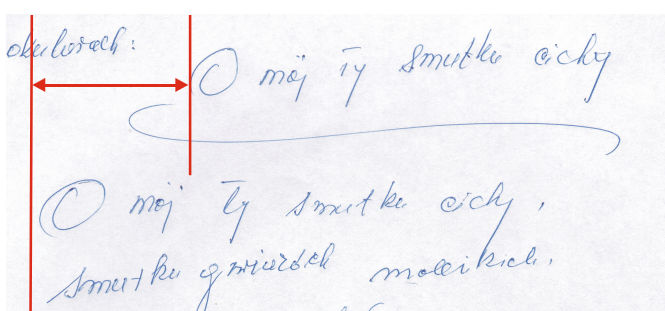 okularach:
O mój Ty smutku cichy
O mój Ty smutku cichy,
smutku gwiazdach maleńkich.